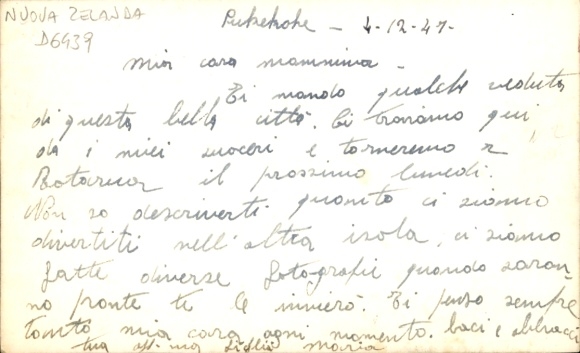 NUOVA ZELANDA
D6439
Pukekohe - 4-12-47-
Mia cara mammina -
Ti mando qualche veduta
di questa bella città. Ci troviamo qui,
da i miei suoceri e torneremo a
il prossimo lunedì.
Non so descriverti quanto ci siamo
divertiti nell'altra isola, ci siamo
fatte diverse fotografie quando saran-
no pronte te le invierò. Ti penso sempre
tanto mia cara ogni momento. baci e abbracci
tua aff.ma figlia Maria